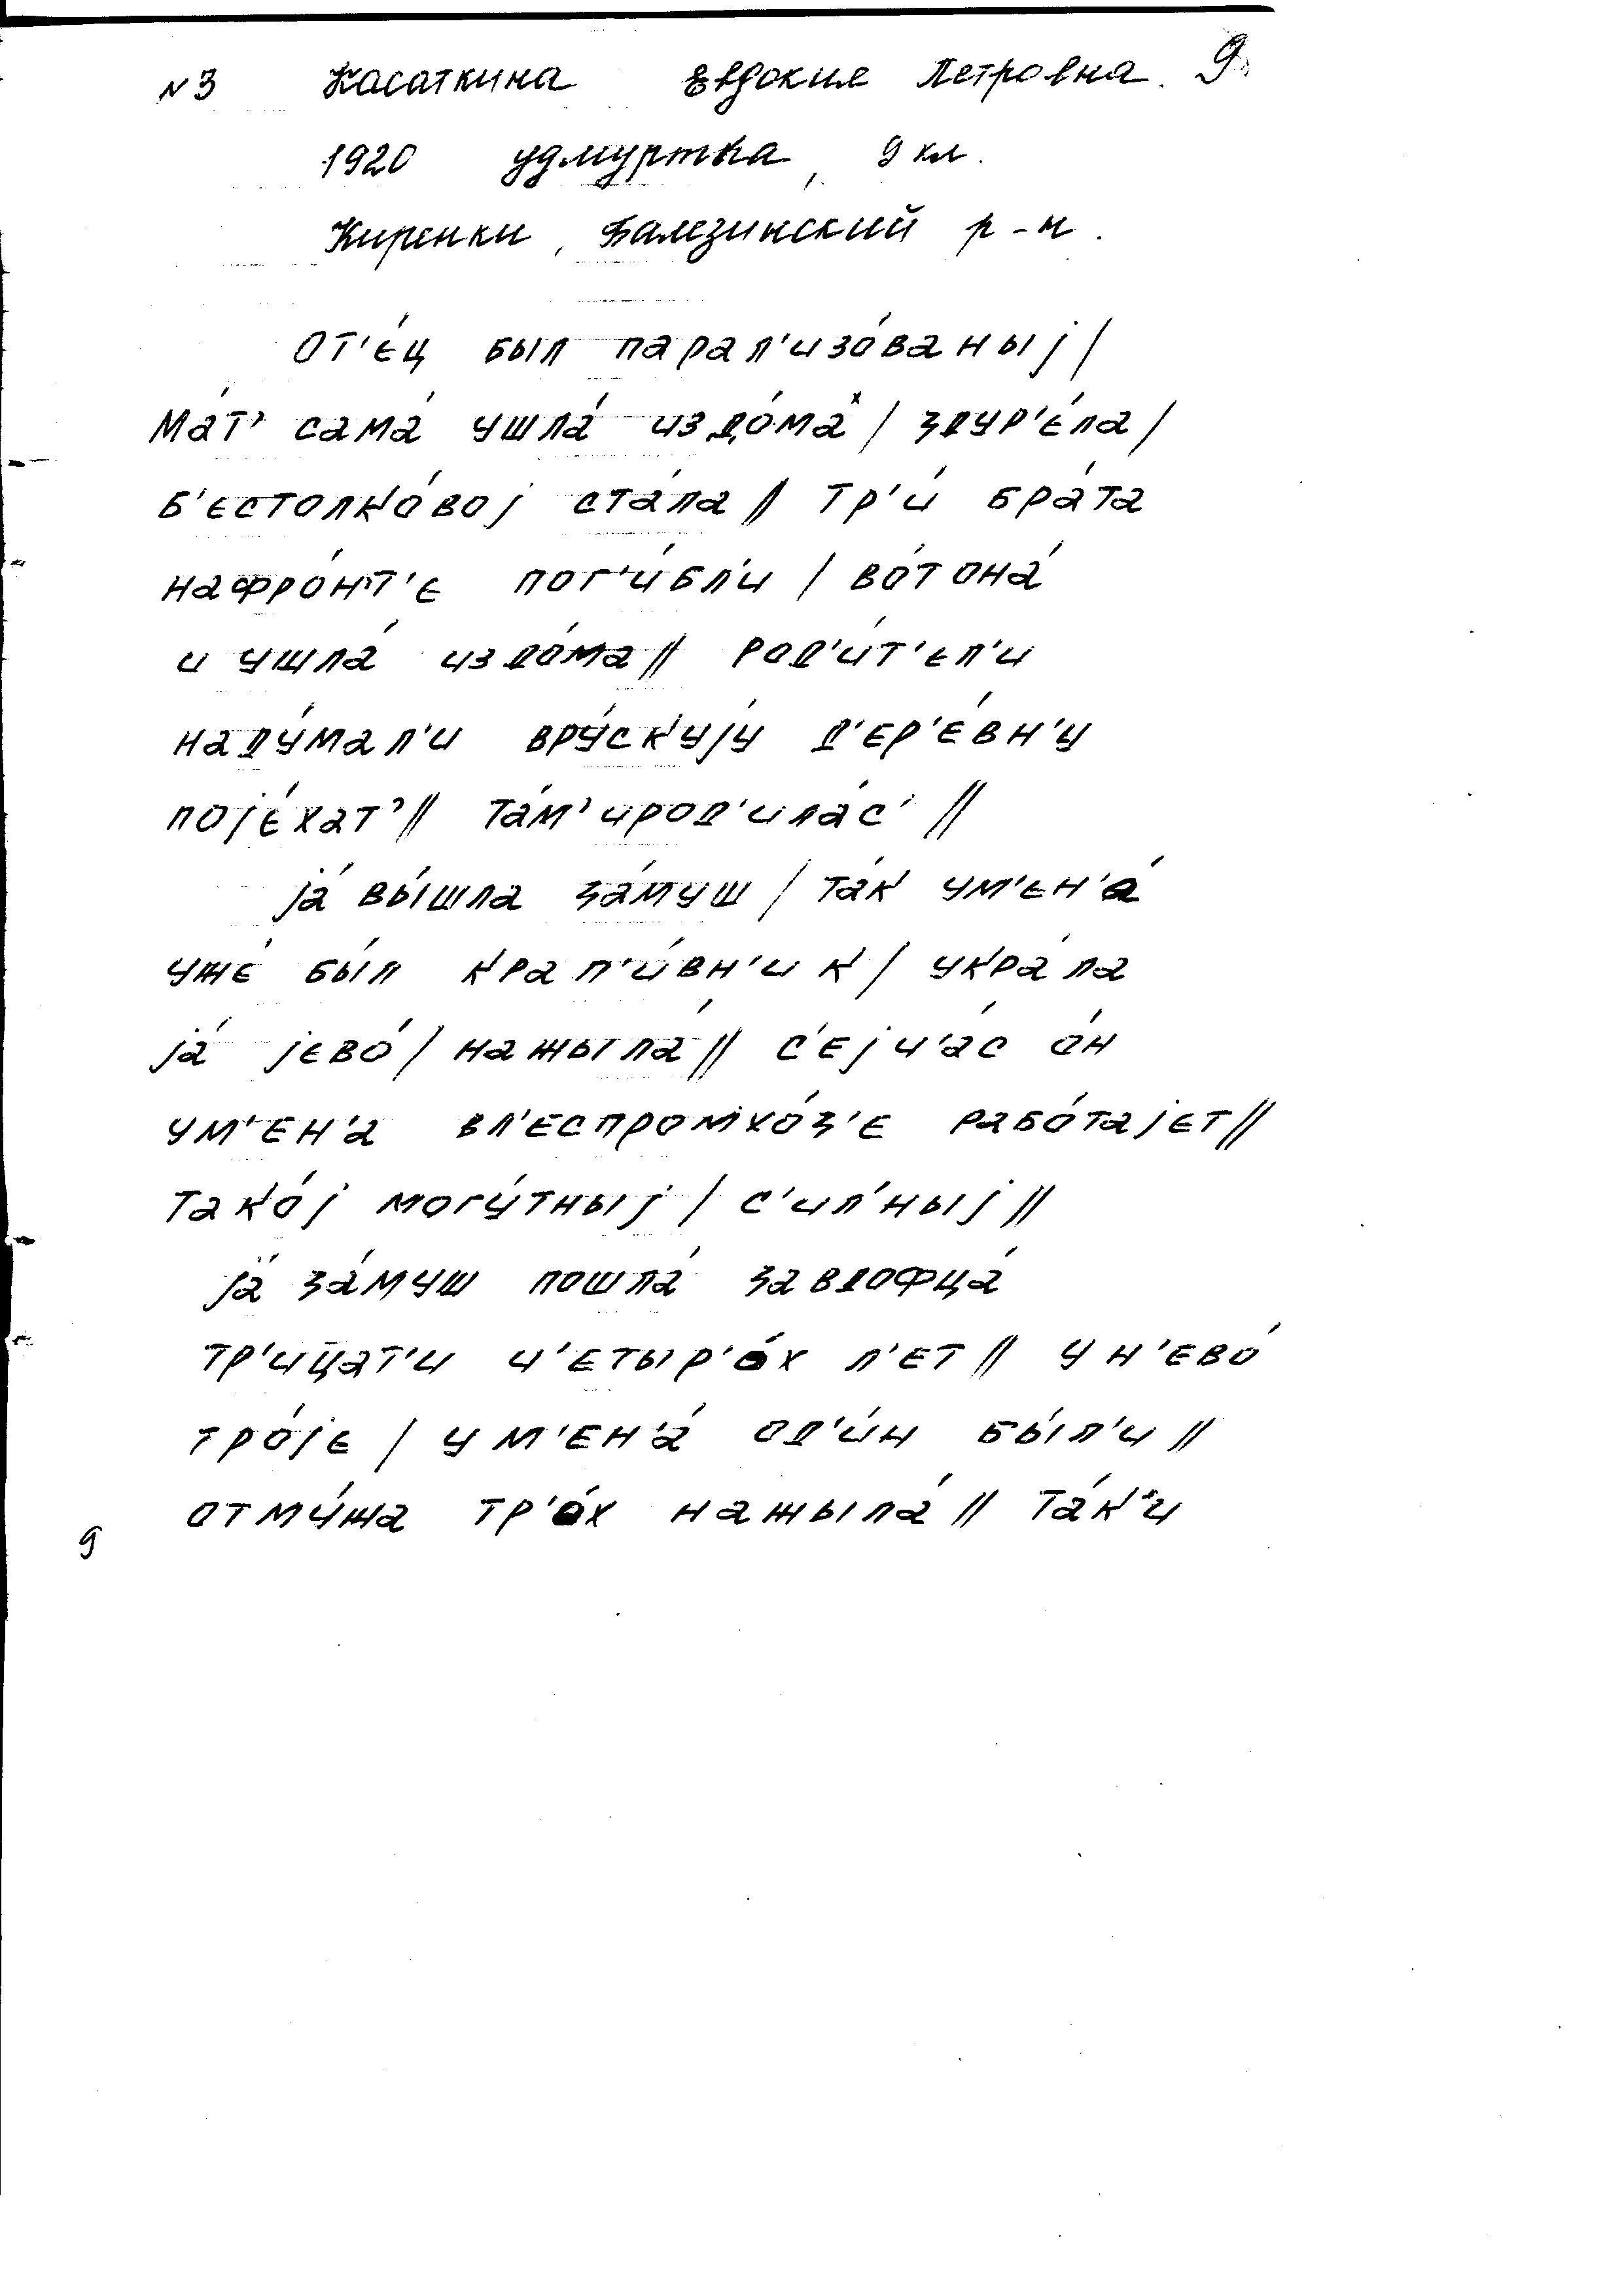 №3 Касаткина Евдокия Петровна. 9
1920 удмуртка, 9 кл.
Киренки, Балезинский р-н.
от'е́ц был парал'изо́ваныj/
ма́т' сама́ ушла́ издо́ма/ здур'е́ла/
б'естолко́воj ста́ла// тр'и́ бра́та
нафро́нт'е пог'и́бл'и / во́т она́
и ушла́ издо́ма// род'и́т'ел'и
наду́мал'и вру́скуjу д'ер'е́вн'у
поjе́хат'// та́м'ирод'ила́с' //
jа́ вы́шла за́муш / та́к ум'ен'а́
уже́ бы́л крап'и́вн'ик/ укра́ла
jа́ jево́/ нажыла́// с'еjч'а́с о́н
ум'ен'а вл'еспромхо́з'е рабо́таjет//
тако́j могу́тныj / с'ил'ныj//
jа́ за́муш пошла́ завдофца́
тр'ицат'и ч'етыр'о́х л'ет// у н'ево́
тро́jе / у м'ен'а́ од'и́н бы́л'и //
отму́жа тр'о́х нажыла́// та́к'и
9